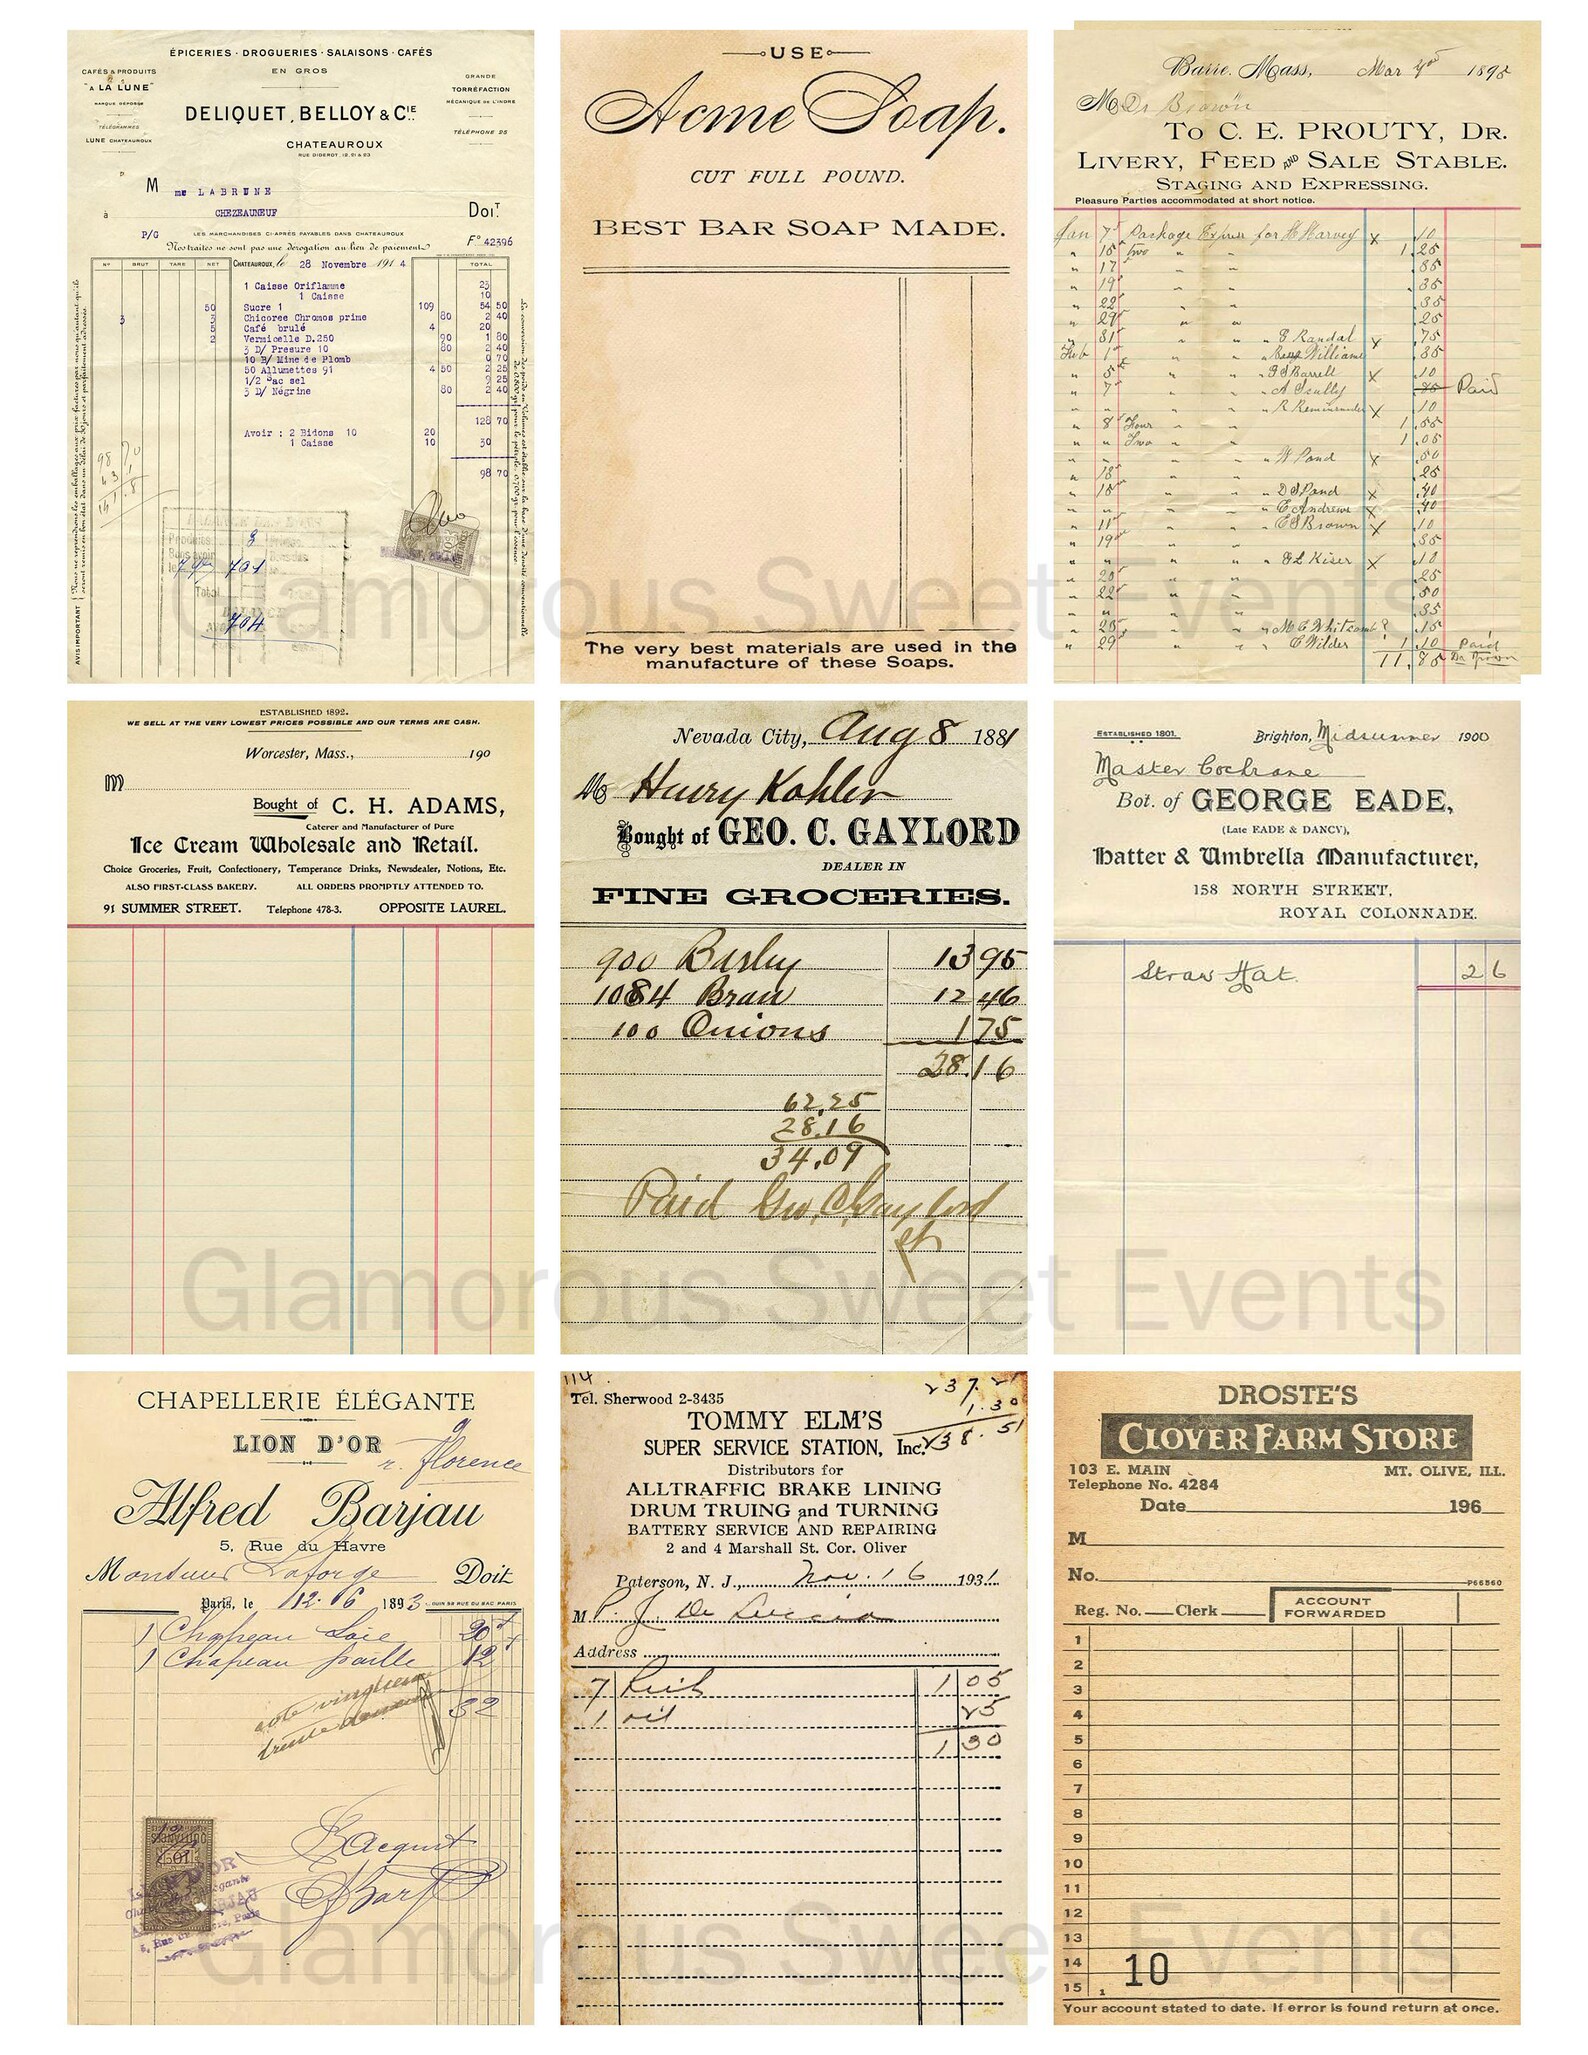 ÉPICERIES · DROGUERIES · SALAISONS · CAFÉS
EN GROS
CAFÉS & PRODUITS
"A LA LUNE"
MARQUE DÉPOSÉE
TÉLÉGRAMMES
LUNE CHATEAUROUX
GRANDE
TORRÉFACTION
MÉCANIQUE DE L'INDRE
TÉLÉPHONE 25
DELIQUET, BELLOY & CIE
CHATEAUROUX
RUE DIDEROT, 12, 21 & 23
M me LABRUNE
à CHEZEAUNEUF
Doit
P/G
LES MARCHANDISES CI-APRÈS PAYABLES DANS CHATEAUROUX
Nos traites ne sont pas une dérogation au lieu de paiement
Fº 42396
Nº BRUT TARE NET CHATEAUROUX, le 28 Novembre 1914 TOTAL
1 Caisse Oriflamme 23
1 Caisse 10
50 Sucre 1 109 54 50
3 3 Chicoree Chromos prime 80 2 40
5 Café brulé 4 20
2 Vermicelle D.250 90 1 80
3 D/ Presure 10 80 2 40
10 B/ Mine de Plomb 0 70
50 Allumettes 91 4 50 2 25
1/2 Sac sel 9 25
3 D/ Négrine 80 2 40
128 70
Avoir : 2 Bidons 10 20
1 Caisse 10 30
98 70
AVIS IMPORTANT
704
USE
Acme Soap.
CUT FULL POUND.
BEST BAR SOAP MADE.
The very best materials are used in the
manufacture of these Soaps.
Barre, Mass, Mar 1895
M Dr Brown
To C. E. PROUTY, Dr.
LIVERY, FEED AND SALE STABLE.
STAGING AND EXPRESSING.
Pleasure Parties accommodated at short notice.
Jan 7 Package Express for H Harvey x .10
" 15 Two " " 1.25
" 17 " " .85
" 19 " " .35
" 22 " " .35
" 29 " " .25
" 31 " " " G Randal x .75
Feb 1 " " " Benj Williams .35
" 5 " " " Barrell x .10
" 7 " " " A Scully .25 Paid
" " " " " x .10
" 8 Four " " 1.55
" " Two " " 1.05
" " " " " W Pond x .50
" 18 " " .25
" 15 " " " D S Pond x .40
" " " " E Andrews x .40
" 11 " " " E S Brown x 10
" 19 " " .35
" " " " " E L Kiser x .10
" 20 " " .25
" 22 " " .50
" " " " .35
" 25 " " " M E Whitcomb ? .15
" 29 " " " C Wilder 1.10 Paid
11.85 Dr Brown
ESTABLISHED 1892.
WE SELL AT THE VERY LOWEST PRICES POSSIBLE AND OUR TERMS ARE CASH.
Worcester, Mass., 190
M
Bought of C. H. ADAMS,
Caterer and Manufacturer of Pure
Ice Cream Wholesale and Retail.
Choice Groceries, Fruit, Confectionery, Temperance Drinks, Newsdealer, Notions, Etc.
ALSO FIRST-CLASS BAKERY. ALL ORDERS PROMPTLY ATTENDED TO.
91 SUMMER STREET. Telephone 478-3. OPPOSITE LAUREL.
Nevada City, Aug 8 1881
M Henry Kohler
Bought of GEO. C. GAYLORD
DEALER IN
FINE GROCERIES.
900 Barley 13 95
1084 Bran 12 46
100 Onions 1 75
28.16
62.25
28.16
34.09
Paid Geo, C, Gaylord
ESTABLISHED 1801.
Brighton, Midsummer 1900
Master Cochrane
Bot. of GEORGE EADE,
(Late EADE & DANCY),
Hatter & Umbrella Manufacturer,
158 NORTH STREET,
ROYAL COLONNADE.
Straw Hat. 2 6
CHAPELLERIE ÉLÉGANTE
LION D'OR
r. Florence
Alfred Barjau
5, Rue du Havre
Monsieur Laforge Doit
Paris, le 12. 6 1893
1 Chapeau Soie 20
1 Chapeau paille 12
32
trente deux
114
Tel. Sherwood 2-3435
237.21
1.30
238.51
TOMMY ELM'S
SUPER SERVICE STATION, Inc.
Distributors for
ALLTRAFFIC BRAKE LINING
DRUM TRUING and TURNING
BATTERY SERVICE AND REPAIRING
2 and 4 Marshall St. Cor. Oliver
Paterson, N. J., Nov. 16 1931
M P. J. De Luccia
Address
7 1 05
1 oil 25
1 30
DROSTE'S
CLOVER FARM STORE
103 E. MAIN MT. OLIVE, ILL.
Telephone No. 4284
Date 196
M
No.
P66560
Reg. No. Clerk ACCOUNT FORWARDED
1
2
3
4
5
6
7
8
9
10
11
12
13
14
15
10
Your account stated to date. If error is found return at once.
Glamorous Sweet Events
Glamorous Sweet Events
Glamorous Sweet Events